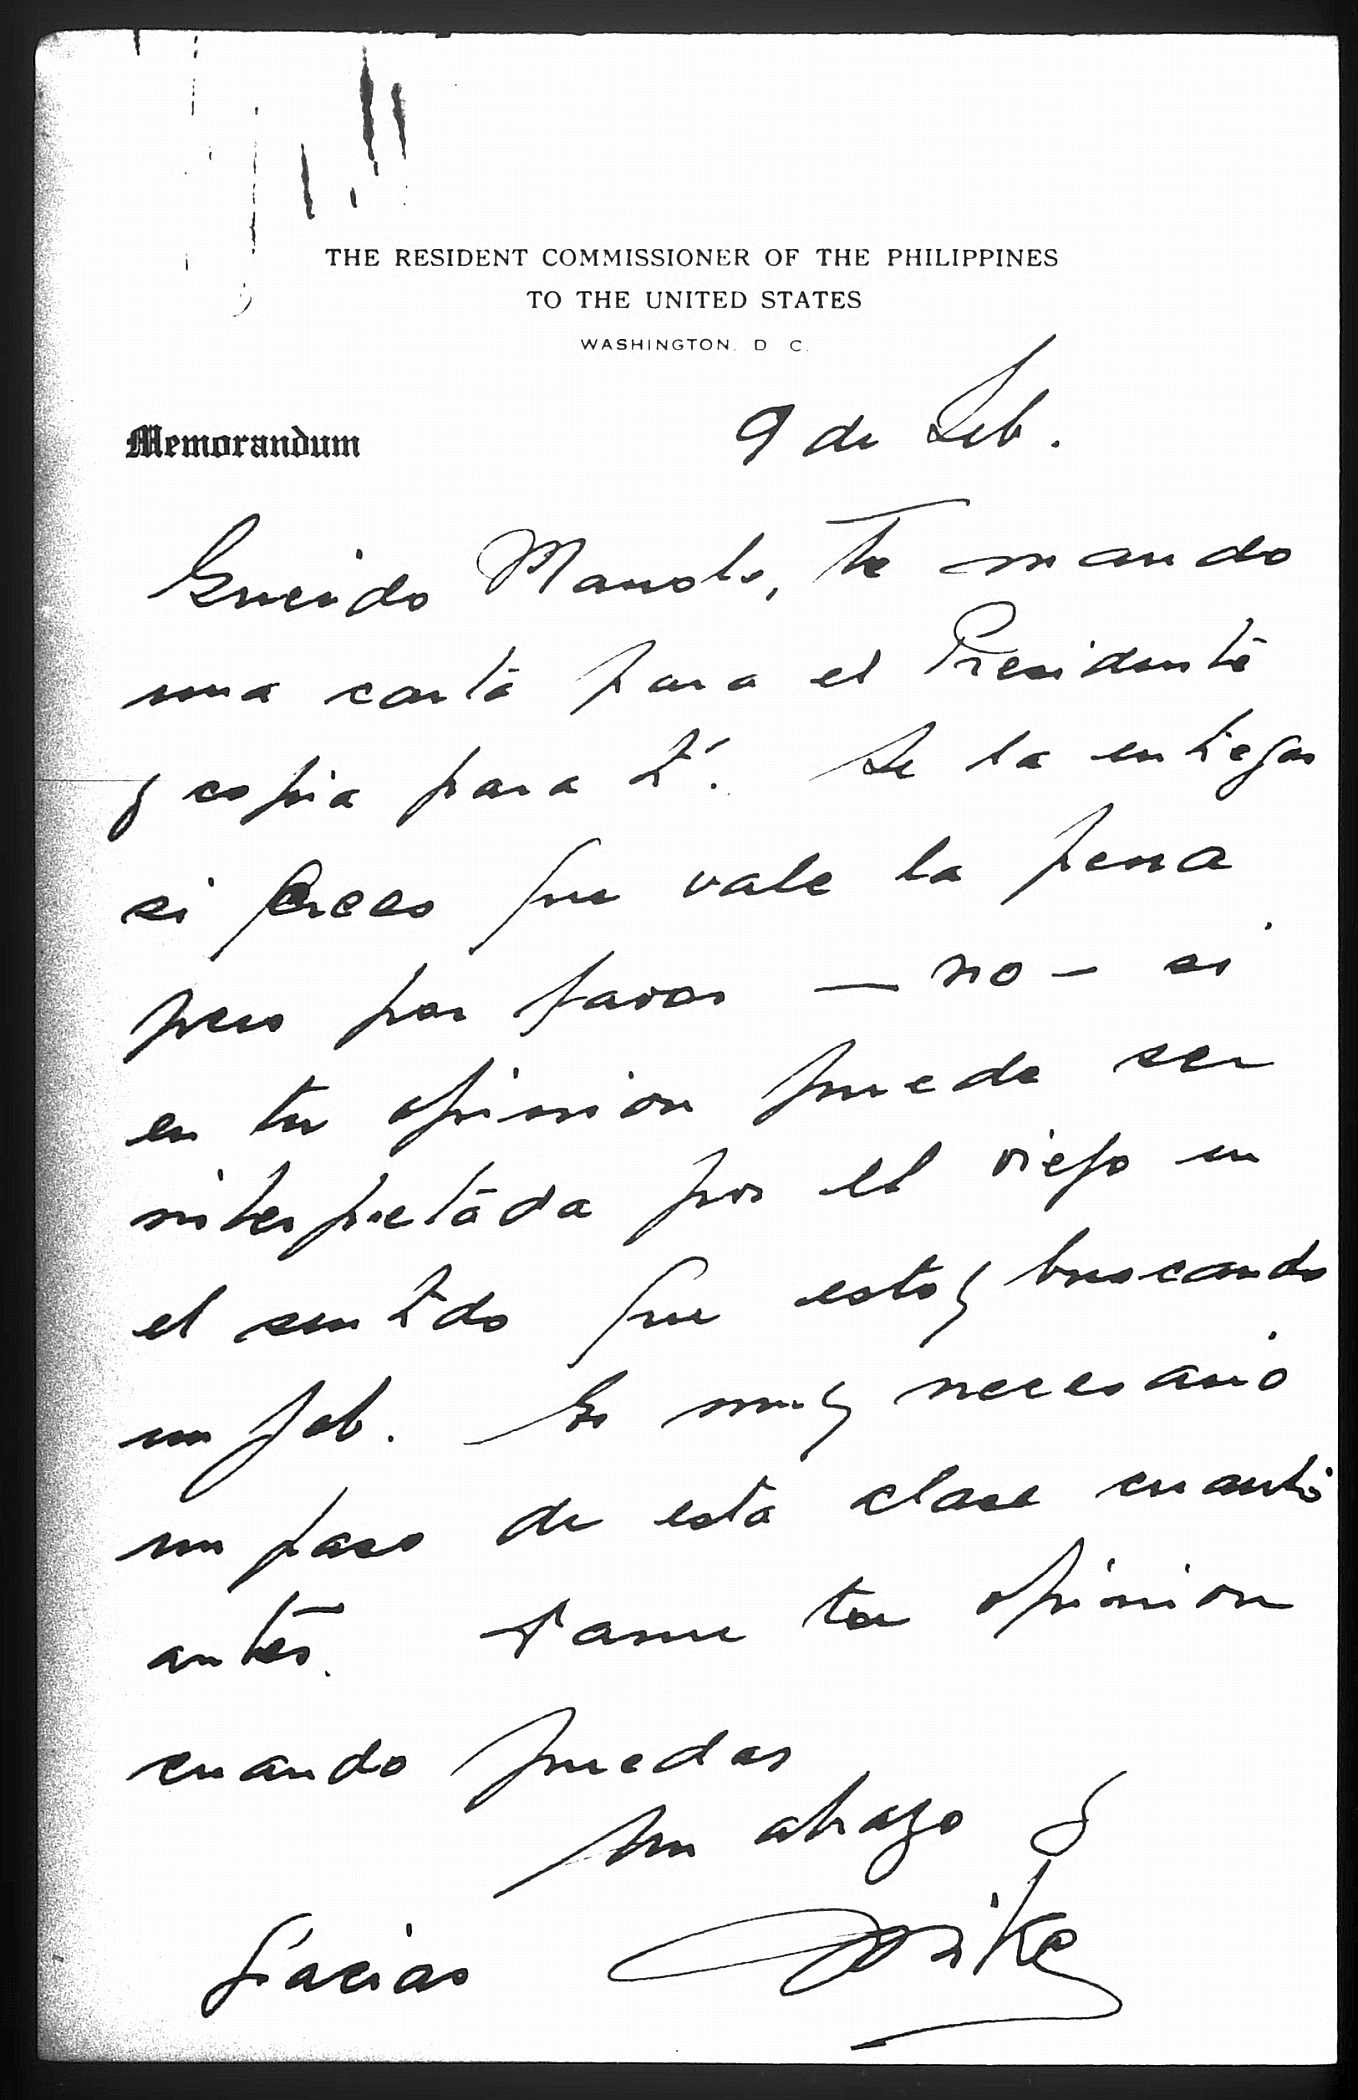 THE RESIDENT COMMISSIONER OF THE PHILIPPINES
TO THE UNITED STATES
WASHINGTON. D C.
Memorandum
9 de Feb.
Querido Manolo, Te mando
una carta para el Presidente
y copia para ti. Se la entregas
si crees que vale la pena
pero por favor — no — si
en tu opinion puede ser
interpretada por el viejo en
el sentido que estoy buscando
un job. Es muy necesario
un paso de esta clase cuanto
antes. Dame tu opinion
cuando puedas
Un abrazo y
Gracias Mike